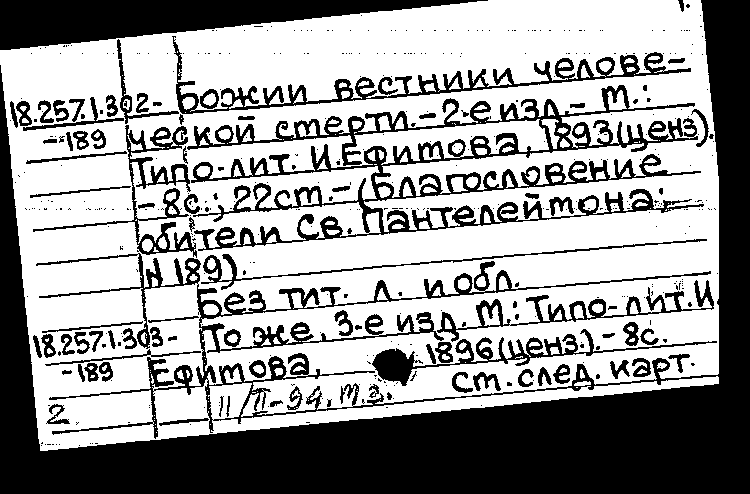 1.
18.257.1.302- Божии вестники челове-
-189 ческой смерти.-2-е изд.- М.:
Типо-лит. И.Ефимова, 1893(ценз).
-8с.; 22см.-(Благословение
обители Св. Пантелеймона;
N 189).
Без тит. л. и обл.
18.257.1.303- То же, 3-е изд. М.: Типо-лит.И.
-189 Ефимова, 1896(ценз.).-8с.
2 11/II-94. т.з. см. след. карт.